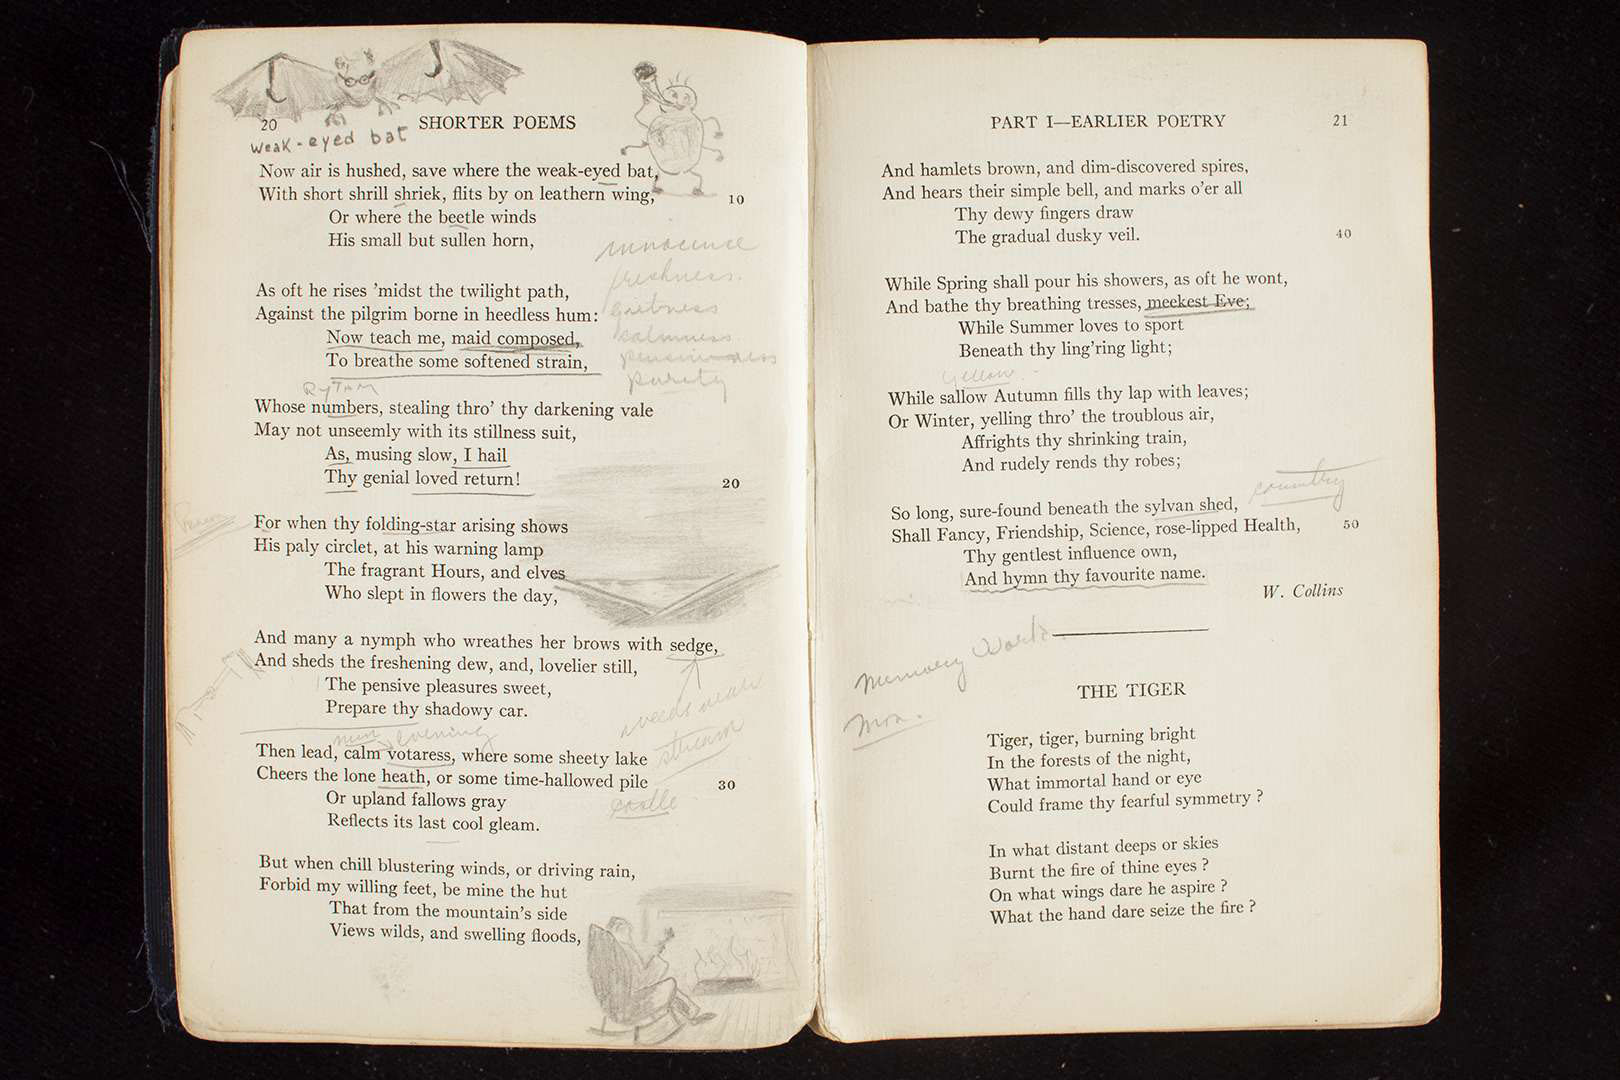 20 SHORTER POEMS
weak-eyed bat
Now air is hushed, save where the weak-eyed bat,
With short shrill shriek, flits by on leathern wing,
10
Or where the beetle winds
His small but sullen horn,
innocence
freshness.
As oft he rises 'midst the twilight path,
Against the pilgrim borne in heedless hum:
Now teach me, maid composed,
calmness
To breathe some softened strain,
pensiveness
purity
RyTHM
Whose numbers, stealing thro' thy darkening vale
May not unseemly with its stillness suit,
As, musing slow, I hail
Thy genial loved return!
20
For when thy folding-star arising shows
His paly circlet, at his warning lamp
The fragrant Hours, and elves
Who slept in flowers the day,
And many a nymph who wreathes her brows with sedge,
And sheds the freshening dew, and, lovelier still,
The pensive pleasures sweet,
Prepare thy shadowy car.
weeds near
stream
nun evening
Then lead, calm votaress, where some sheety lake
Cheers the lone heath, or some time-hallowed pile
30
castle
Or upland fallows gray
Reflects its last cool gleam.
But when chill blustering winds, or driving rain,
Forbid my willing feet, be mine the hut
That from the mountain's side
Views wilds, and swelling floods,
PART I—EARLIER POETRY 21
And hamlets brown, and dim-discovered spires,
And hears their simple bell, and marks o'er all
Thy dewy fingers draw
The gradual dusky veil.
40
While Spring shall pour his showers, as oft he wont,
And bathe thy breathing tresses, meekest Eve;
While Summer loves to sport
Beneath thy ling'ring light;
yellow
While sallow Autumn fills thy lap with leaves;
Or Winter, yelling thro' the troublous air,
Affrights thy shrinking train,
And rudely rends thy robes;
country
So long, sure-found beneath the sylvan shed,
Shall Fancy, Friendship, Science, rose-lipped Health,
50
Thy gentlest influence own,
And hymn thy favourite name.
W. Collins
Memory Work
Mon.
THE TIGER
Tiger, tiger, burning bright
In the forests of the night,
What immortal hand or eye
Could frame thy fearful symmetry?
In what distant deeps or skies
Burnt the fire of thine eyes?
On what wings dare he aspire?
What the hand dare seize the fire?